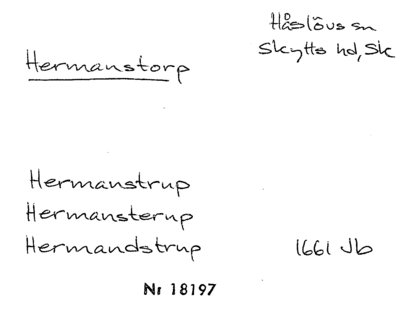 Håslövs sn
Skytts hd, Sk
Hermanstorp
Hermanstrup
Hermansterup
Hermandstrup 1661 Jb
Nr 18197